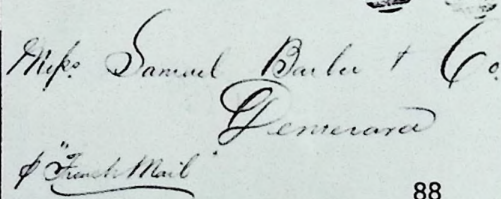 Mess. Samuel Barber & Co.
Demerara
p "French Mail"
88